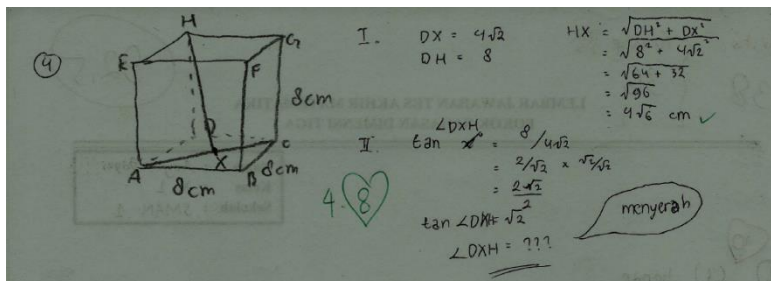 4
H
G
E
F
8cm
D
C
A
X
B
8cm
8cm
I. DX = 4√2
DH = 8
HX = √DH² + DX²
= √8² + 4√2²
= √64 + 32
= √96
= 4√6 cm ✓
II tan ∠DXH = 8/4√2
= 2/√2 × √2/√2
= 2√2/2
tan ∠DXH = √2
∠DXH = ???
menyerah
4. 8
LEMBAR JAWABAN TES AKHIR
DIMENSI TIGA